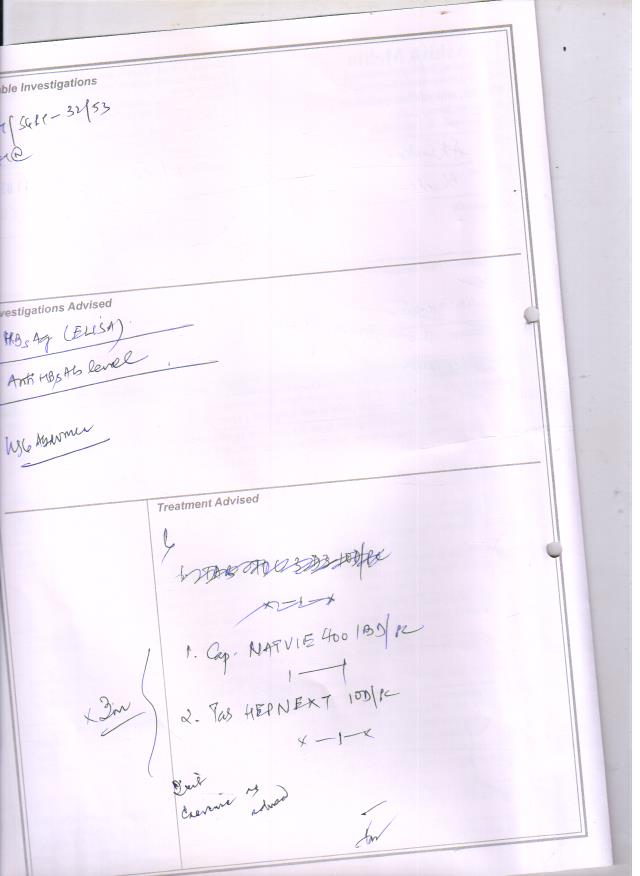 ble Investigations
/SGPT - 32/53
vestigations Advised
HBsAg (ELISA)
Anti HBsAb level
USG Abdomen
Treatment Advised
1. Cap. NATVIE 400 1BD/PC
1 — 1
2. Tab HEPNEXT 1OD/PC
x — 1 — x
x 3m
Diet
Exercise as
advised